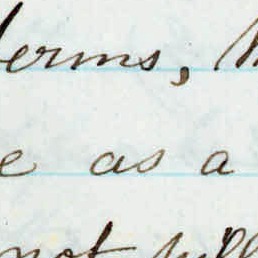 terms,
e as a
not